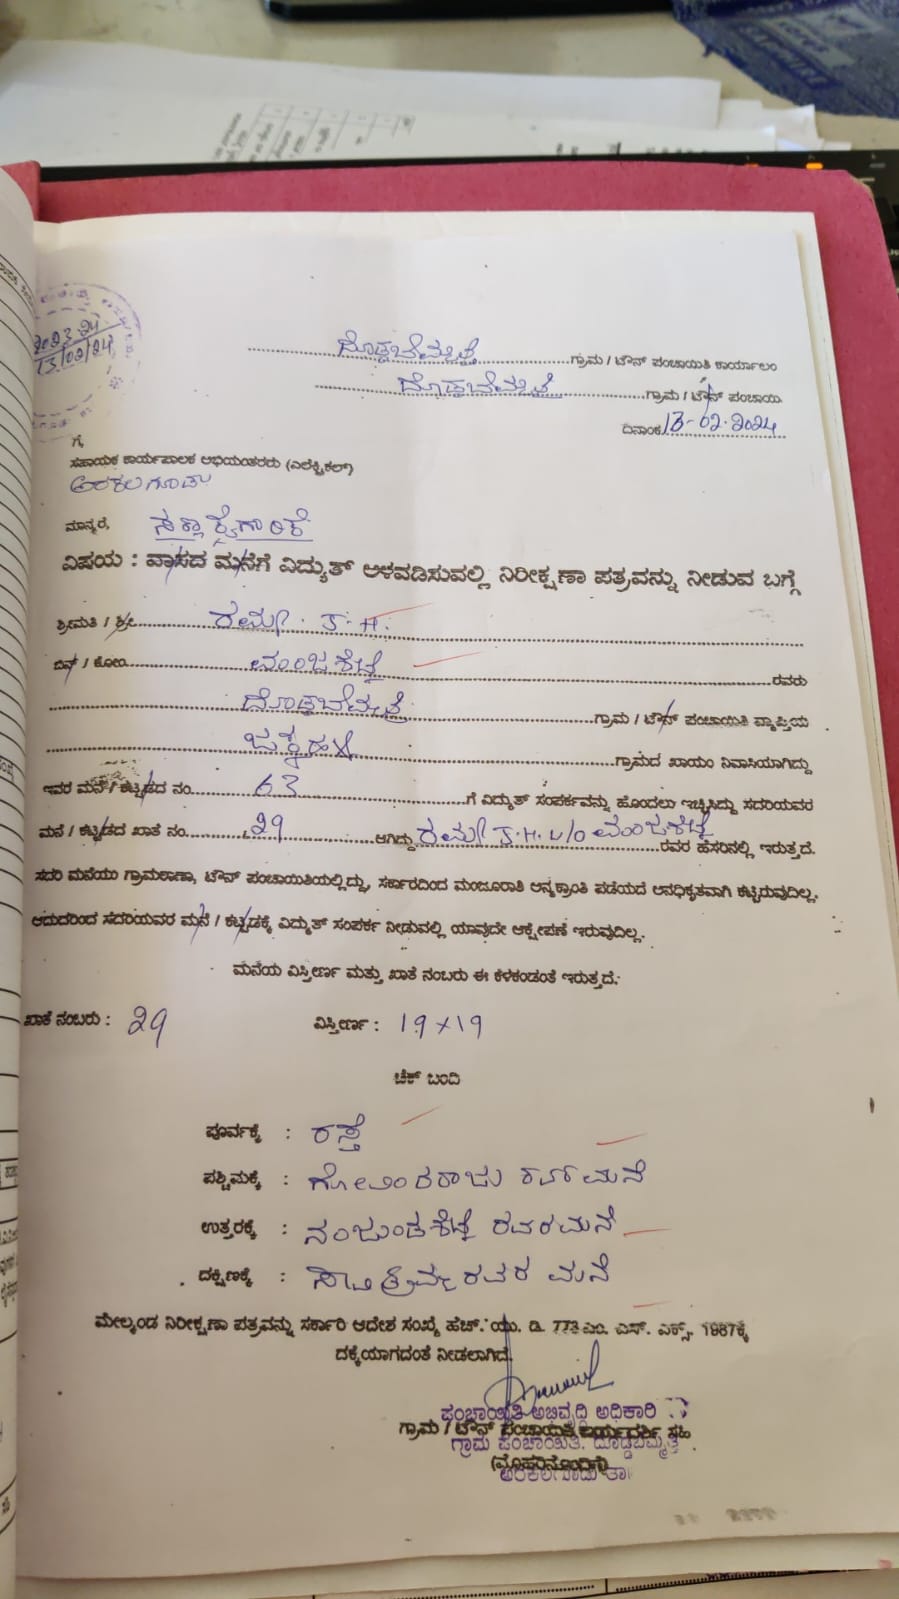 2023-24
13/02/24
ದೊಡ್ಡಬೆಮ್ಮತ್ತಿ ಗ್ರಾಮ / ಟೌನ್ ಪಂಚಾಯಿತಿ ಕಾರ್ಯಾಲಂ
ದೊಡ್ಡಬೆಮ್ಮತ್ತಿ ಗ್ರಾಮ / ಟೌನ್ ಪಂಚಾಯ
ದಿನಾಂಕ 13-02-2024
ಗೆ,
ಸಹಾಯಕ ಕಾರ್ಯಪಾಲಕ ಅಭಿಯಂತರರು (ಎಲೆಕ್ಟ್ರಿಕಲ್)
ಅರಕಲಗೂಡು
ಮಾನ್ಯರೆ,
ವಿಷಯ : ವಾಸದ ಮನೆಗೆ ವಿದ್ಯುತ್ ಅಳವಡಿಸುವಲ್ಲಿ ನಿರೀಕ್ಷಣಾ ಪತ್ರವನ್ನು ನೀಡುವ ಬಗ್ಗೆ
ಶ್ರೀಮತಿ / ಶ್ರೀ ರಮ್ಯ. J.H.
ಬಿನ್ / ಕೋಂ ಮಂಜಶೆಟ್ಟಿ ರವರು
ದೊಡ್ಡಬೆಮ್ಮತ್ತಿ ಗ್ರಾಮ / ಟೌನ್ ಪಂಚಾಯಿತಿ ವ್ಯಾಪ್ತಿಯ
ಗ್ರಾಮದ ಖಾಯಂ ನಿವಾಸಿಯಾಗಿದ್ದು
ಇವರ ಮನೆ / ಕಟ್ಟಡದ ನಂ. 63 ಗೆ ವಿದ್ಯುತ್ ಸಂಪರ್ಕವನ್ನು ಹೊಂದಲು ಇಚ್ಛಿಸಿದ್ದು ಸದರಿಯವರ
ಮನೆ / ಕಟ್ಟಡದ ಖಾತೆ ನಂ. 29 ಆಗಿದ್ದು ರಮ್ಯ J.H. W/O ಮಂಜಶೆಟ್ಟಿ ರವರ ಹೆಸರಿನಲ್ಲಿ ಇರುತ್ತದೆ.
ಸದರಿ ಮನೆಯು ಗ್ರಾಮಠಾಣಾ, ಟೌನ್ ಪಂಚಾಯಿತಿಯಲ್ಲಿದ್ದು, ಸರ್ಕಾರದಿಂದ ಮಂಜೂರಾತಿ ಅನ್ಯಕ್ರಾಂತಿ ಪಡೆಯದೆ ಅನಧಿಕೃತವಾಗಿ ಕಟ್ಟಿರುವುದಿಲ್ಲ.
ಆದುದರಿಂದ ಸದರಿಯವರ ಮನೆ / ಕಟ್ಟಡಕ್ಕೆ ವಿದ್ಯುತ್ ಸಂಪರ್ಕ ನೀಡುವಲ್ಲಿ ಯಾವುದೇ ಆಕ್ಷೇಪಣೆ ಇರುವುದಿಲ್ಲ.
ಮನೆಯ ವಿಸ್ತೀರ್ಣ ಮತ್ತು ಖಾತೆ ನಂಬರು ಈ ಕೆಳಕಂಡಂತೆ ಇರುತ್ತದೆ:
ಖಾತೆ ನಂಬರು : 29 ವಿಸ್ತೀರ್ಣ : 19 x 19
ಚೆಕ್ ಬಂದಿ
ಪೂರ್ವಕ್ಕೆ : ರಸ್ತೆ
ಪಶ್ಚಿಮಕ್ಕೆ : ಗೋವಿಂದರಾಜು ರವರ ಮನೆ
ಉತ್ತರಕ್ಕೆ : ನಂಜುಂಡಶೆಟ್ಟಿ ರವರಮನೆ
ದಕ್ಷಿಣಕ್ಕೆ : ಸಾವಿತ್ರಮ್ಮರವರ ಮನೆ
ಮೇಲ್ಕಂಡ ನಿರೀಕ್ಷಣಾ ಪತ್ರವನ್ನು ಸರ್ಕಾರಿ ಆದೇಶ ಸಂಖ್ಯೆ ಹೆಚ್. ಯು. ಡಿ 773 ಎಂ. ಎಸ್. ಎಕ್ಸ್. 1987ಕ್ಕೆ
ದಕ್ಕೆಯಾಗದಂತೆ ನೀಡಲಾಗಿದೆ.
ಪಂಚಾಯಿತಿ ಅಭಿವೃದ್ಧಿ ಅಧಿಕಾರಿ
ಗ್ರಾಮ / ಟೌನ್ ಪಂಚಾಯಿತಿ ಕಾರ್ಯದರ್ಶಿ ಸಹಿ
ಗ್ರಾಮ ಪಂಚಾಯಿತಿ. ದೊಡ್ಡಬೆಮ್ಮತ್ತಿ
(ಮೊಹರಿನೊಂದಿಗೆ)
ಅರಕಲಗೂಡು ತಾ